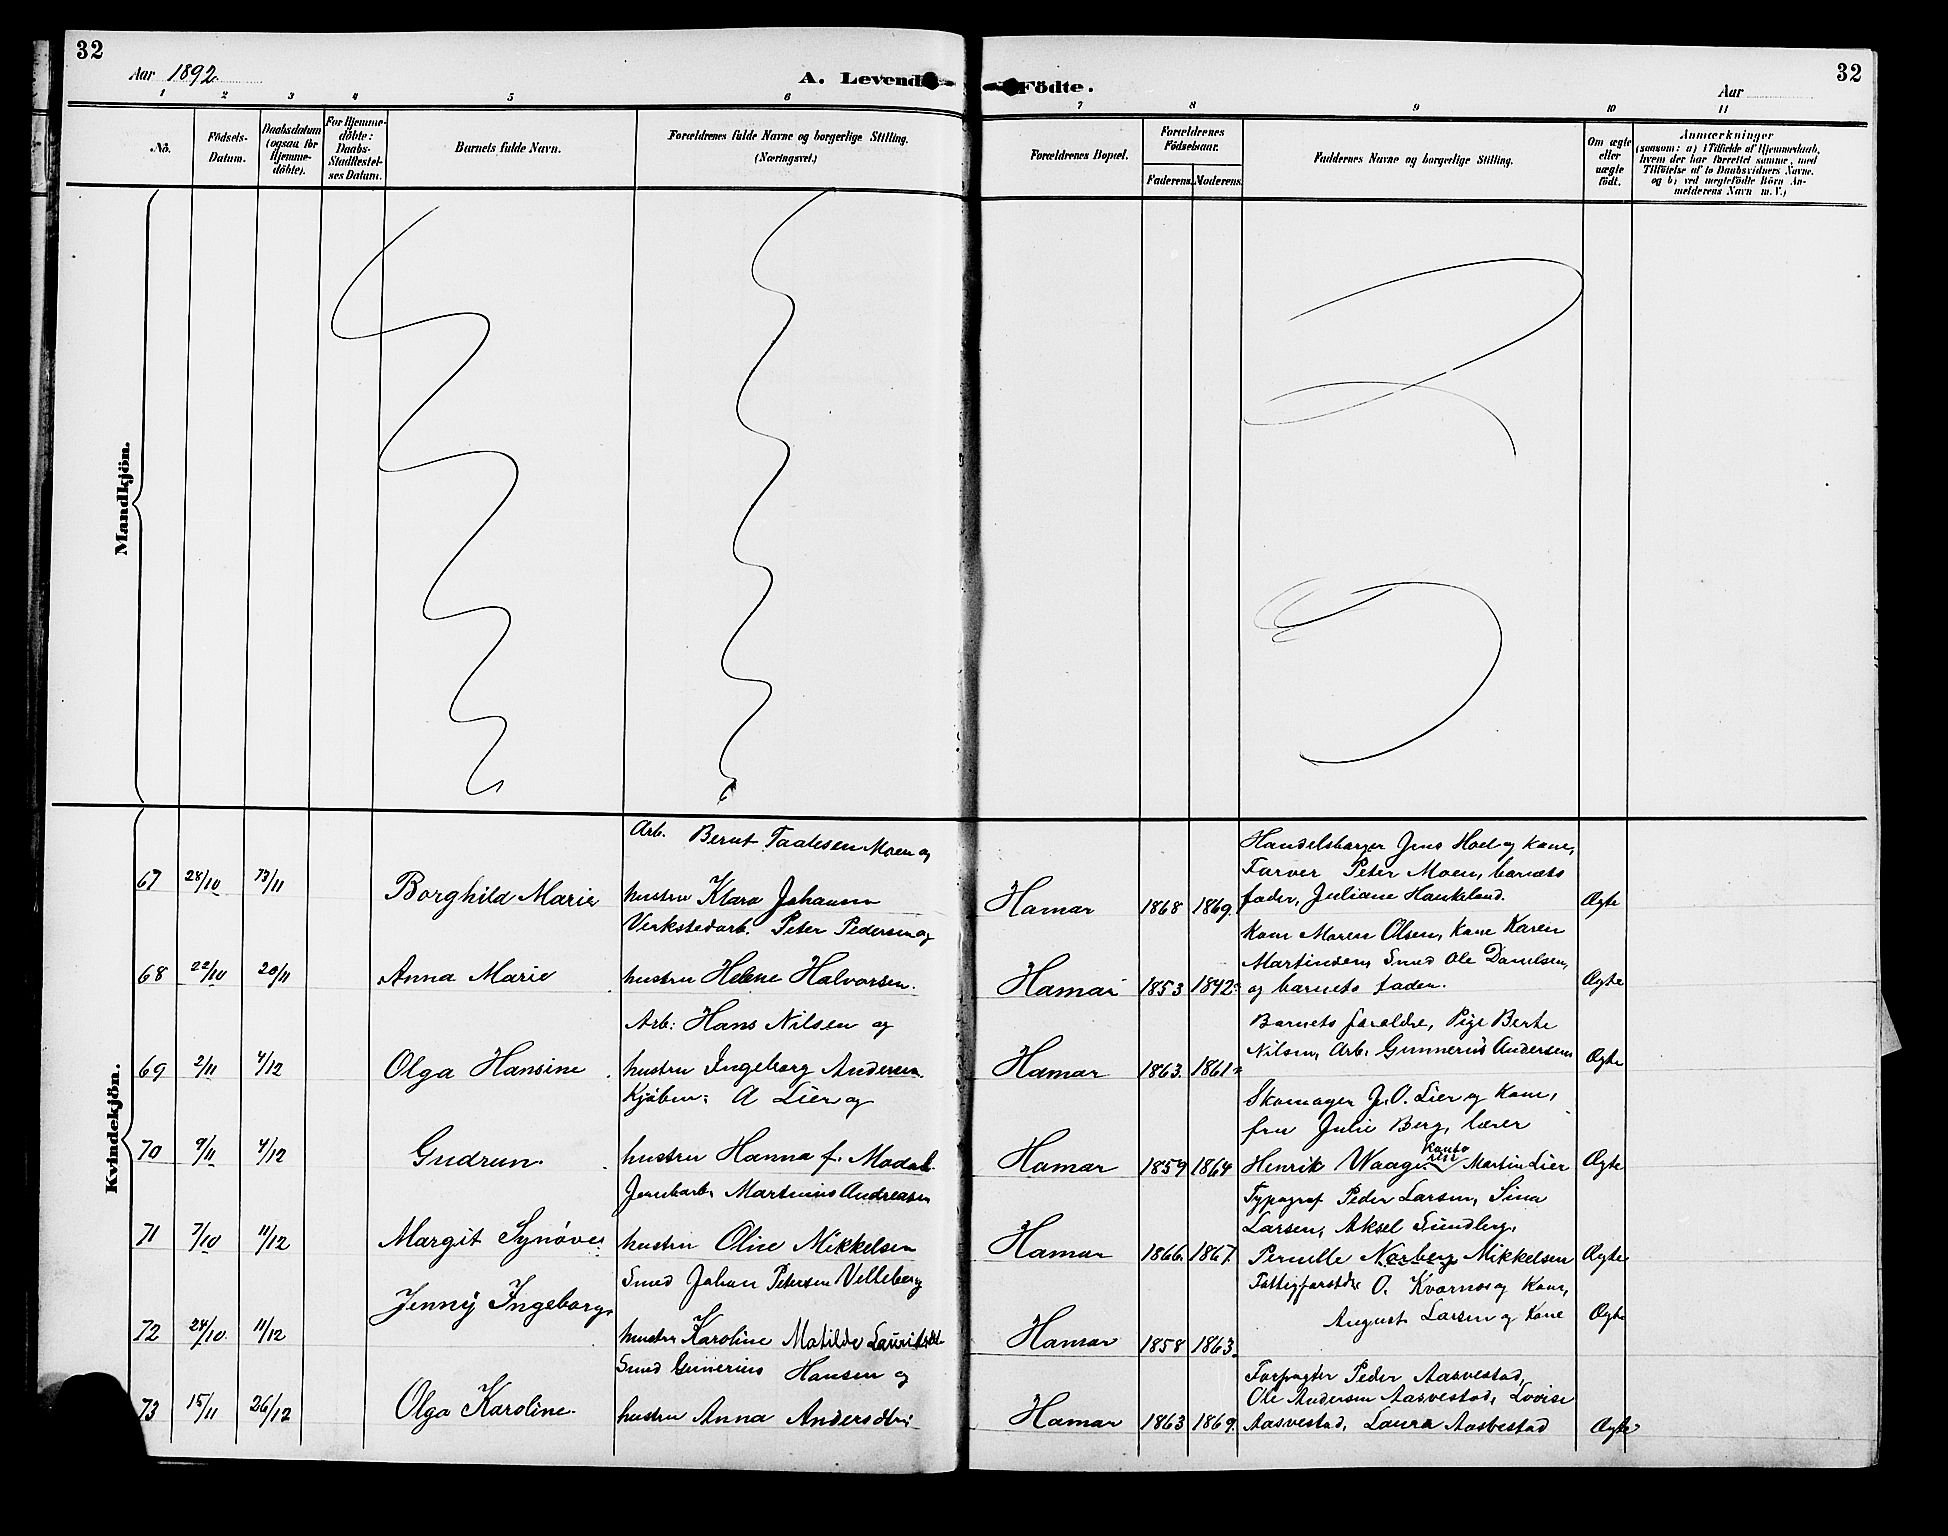 32
Aar 1892.
A. Levende
Födte.
32
Aar
1 2 3 4 5 6 7 8 9 10 11
No.
Födsels-
Datum.
Daabsdatum
(ogsaa for
Hjemme-
döbte).
For Hjemme-
döbte:
Daabs-
Stadfæstel-
ses Datum.
Barnets fulde Navn.
Forældrenes fulde Navne og borgerlige Stilling.
(Næringsvei.)
Forældrenes Bopæl.
Forældrenes
Födselsaar.
Faderens.
Moderens.
Faddernes Navne og borgerlige Stilling.
Om ægte
eller
uægte
födt.
Anmærkninger
(saasom: a) i Tilfælde af Hjemmedaab,
hvem der har forrettet samme, med
Tilföielse af to Daabsvidners Navne.
og b) ved uægtefödte Börn An-
melderens Navn m. V.)
Mandkjön.
Kvindekjön.
67 28/10 13/11 Borghild Marie
Arb. Bernt Taalesen Moen og
hustru Klara Johansen
Hamar 1868 1869.
Handelsborger Jens Hoel og kone,
Farver Peter Moen, barnets
fader, Juliane Haukeland.
Ægte
68 22/10 20/11 Anna Marie
Verkstedarb. Peter Pedersen og
hustru Helene Halvorsen.
Hamar 1853 1842.
Kone Maren Olsen, Kone Karen
Martinsen, Smed Ole Danielsen,
og barnets fader.
Ægte
69 2/11 4/12 Olga Hansine
Arb: Hans Nilsen og
hustru Ingeborg Andersen
Hamar 1863. 1861
Barnets forældre, Pige Berte
Nilsen, Arb. Gunnerius Andersen
Ægte
70 9/11 4/12 Gudrun.
Kjøbm: A Lier og
hustru Hanna f.
Hamar 1859 1864
Skomager J. O. Lier og Kone,
fru Julie Berg, lærer
Henrik Waage Martin Lier
Ægte
71 7/10 11/12 Margit Synøve
Jernbarb. Martinius Andreasen
hustru Oline Mikkelsen
Hamar 1866. 1867.
Typograf Peder Larsen, Sina
Larsen, Aksel Sundberg,
Pernille Norberg Mikkelsen
Ægte
72 24/10. 11/12 Jenny Ingeborg
Smed Johan Petersen Velleberg
hustru Karoline Matilde
Hamar 1858 1863.
Fattigforst. O. Kvarnes og Kone,
August Larsen og Kone
Ægte
73 15/11 26/12 Olga Karoline.
Smed Gunerius Hansen og
hustru Anna Andersdtr.
Hamar 1863 1869.
Forpagter Peder Aasvestad,
Ole Andersen Aasvestad, Lovise
Aasvestad, Laura Aasvestad
Ægte